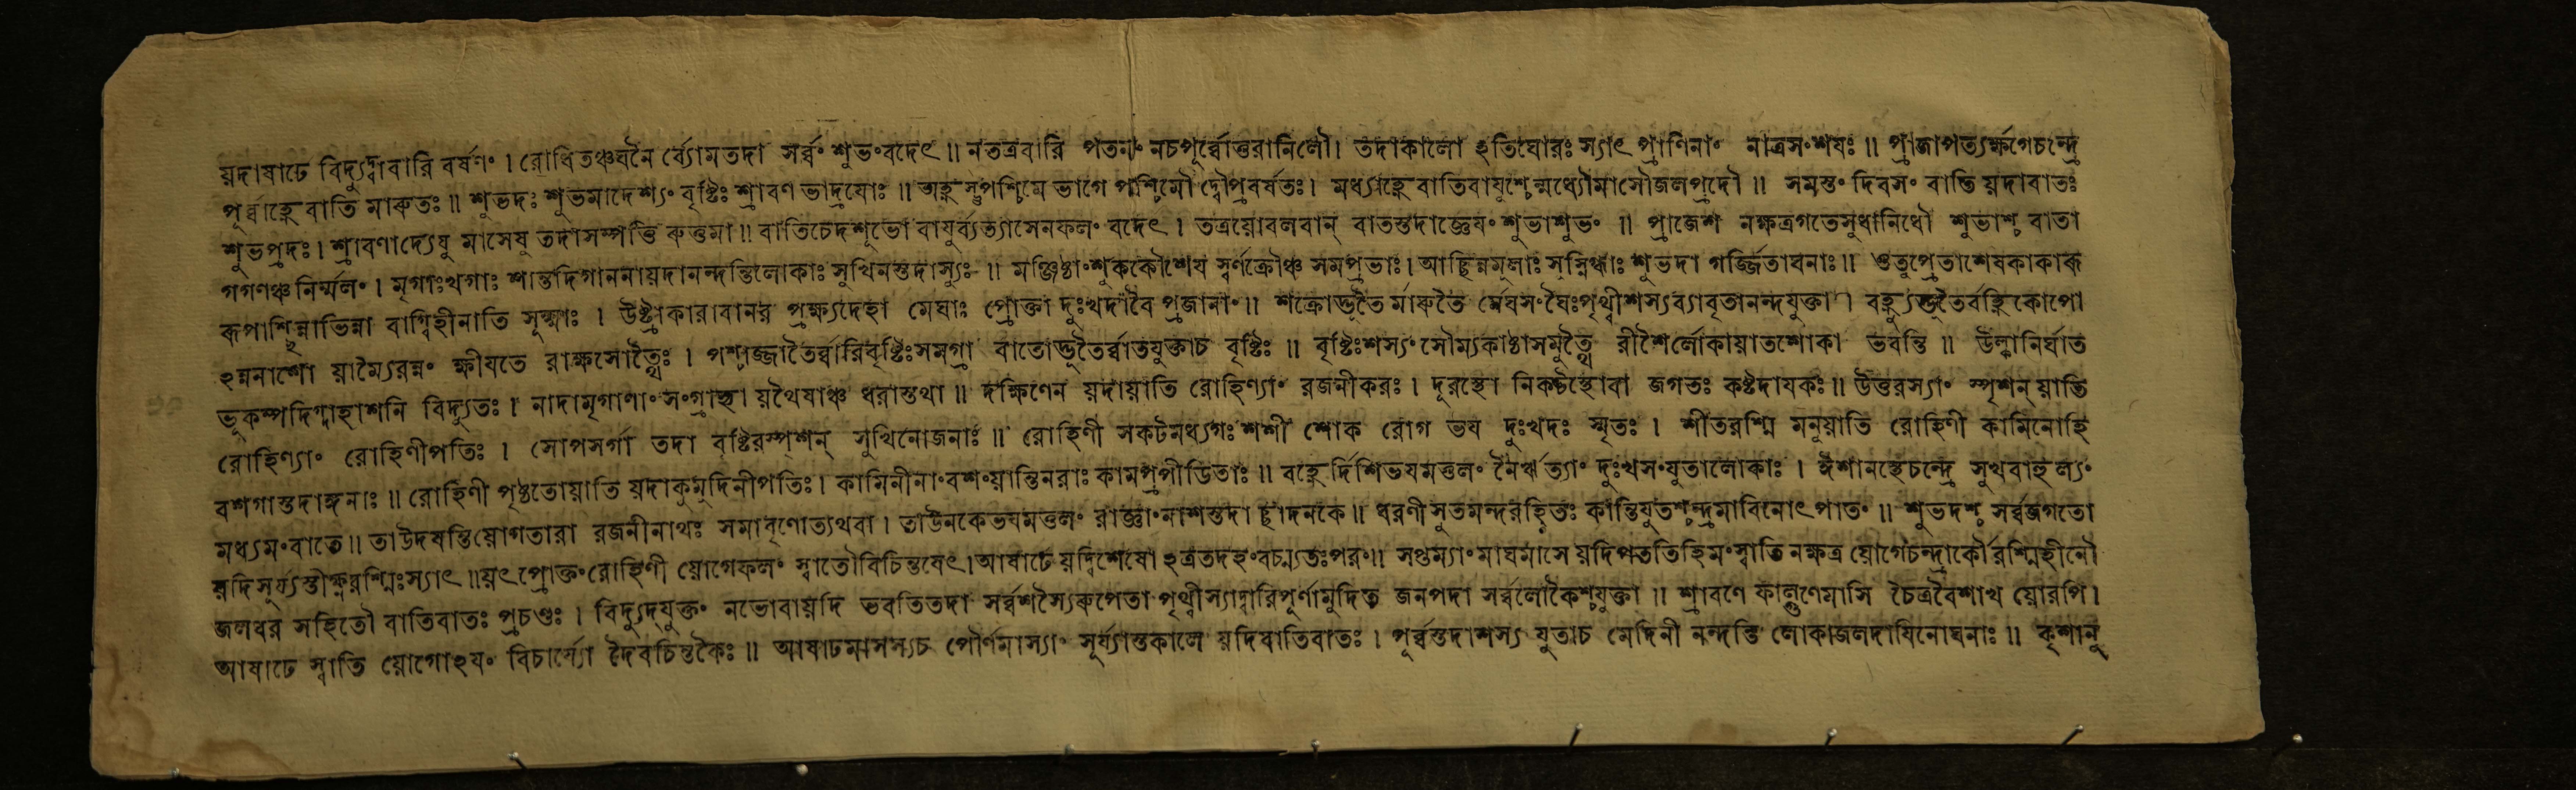 য়দাষাঢে বিদ্যুদ্বাবারি বর্ষণং । রোধিতঞ্চঘনৈ র্ব্যোমতদা সর্ব্বং শুভংবদেৎ ॥ নতত্রবারি পতনং নচপূর্ব্বোত্তরানিলৌ। তদাকালো ঽতিঘোরঃ স্যাৎ প্রাণিনাং নাত্রসংশযঃ ॥ প্রাজাপত্যর্ক্ষগেচন্দ্রে
পূর্ব্বাহ্নে বাতি মারুতঃ ॥ শুভদঃ শুভমাদেশ্যং বৃষ্টিঃ শ্রাবণ ভাদ্রযোঃ ॥ অহ্নস্তুপশ্চিমে ভাগে পশ্চিমৌ দ্বৌপ্রবর্ষতঃ। মধ্যাহ্নে বাতিবাযুশ্চেন্মধ্যৌমাসৌজলপ্রদৌ ॥ সমস্তং দিবসং বাতি য়দাবাতঃ
শুভপ্রদঃ। শ্রাবণাদ্যেযু মাসেষু তদাসম্পত্তি রুত্তমা ॥ বাতিচেদশূভো বাযুর্ব্যত্যাসেনফলং বদেৎ । তত্রয়োবলবান্ বাতস্তদাজ্ঞেযং শুভাশুভং ॥ প্রাজেশ নক্ষত্রগতেসুধানিধৌ শুভাশ্চ বাতা
গগণঞ্চনির্ম্মলং । মৃগাঃখগাঃ শান্তদিগাননায়দানন্দন্তিলোকাঃ সুখিনস্তদাস্যুঃ ॥ মঞ্জিষ্ঠাংশুককৌশেয স্বর্ণক্রৌঞ্চ সমপ্রভাঃ। আছিন্নমূলাঃ সুস্নিগ্ধাঃ শুভদা গর্জ্জিতাঘনাঃ ॥ ওতুপ্রেতাশেষকাকাক
রূপাশ্ছিন্নাভিন্না বাগ্বিহীনাতি সূক্ষ্মাঃ । উষ্ট্রাকারাবানর প্রক্ষ্যদেহা মেঘাঃ প্রোক্তা দুঃখদাবৈ প্রজানাং ॥ শক্রোদ্ভুতৈ র্মারুতৈ র্মেঘসংঘৈঃপৃথ্বীশস্যব্যাবৃতানন্দযুক্তা । বহ্ন্যুদ্ভুতৈর্বহ্নিকোপো
ঽন্ননাশো য়াম্যৈরন্নং ক্ষীযতে রাক্ষসোত্থৈঃ । পশ্চাজ্জাতৈর্ব্বারিবৃষ্টিঃসমগ্রা বাতোদ্ভুতৈর্ব্বাতযুক্তাচ বৃষ্টিঃ ॥ বৃষ্টিঃশস্যং সৌম্যকাষ্ঠাসমুত্থৈ রীশৈর্লোকায়াতশোকা ভবন্তি ॥ উল্কানির্ঘাত
ভূকম্পদিগ্দাহাশনি বিদ্যুতঃ । নাদামৃগাণাং সংগ্রাহ্যা য়থৈষাঞ্চ ধরাস্তথা ॥ দক্ষিণেন য়দায়াতি রোহিণ্যাং রজনীকরঃ । দূরস্থো নিকটস্থোবা জগতঃ কষ্টদাযকঃ ॥ উত্তরস্যাং স্পৃশন্ য়াতি
রোহিণ্যাং রোহিণীপতিঃ । সোপসর্গা তদা বৃষ্টিরস্পৃশন্ সুখিনোজনাঃ ॥ রোহিণী সকটমধ্যগঃ শশী শোক রোগ ভয দুঃখদঃ স্মৃতঃ । শীতরশ্মি মনুয়াতি রোহিণী কামিনোহি
বশগাস্তদাঙ্গনাঃ ॥ রোহিণী পৃষ্ঠতোয়াতি য়দাকুমুদিনীপতিঃ। কামিনীনাংবশংয়ান্তিনরাঃ কামপ্রপীডিতাঃ ॥ বহ্নের্দিশিভযমতুলং নৈরৃত্যাং দুঃখসংযুতালোকাঃ । ঈশানস্থেচন্দ্রে সুখবাহুল্যং
মধ্যমংবাতে ॥ তাউদষন্তিয়োগতারা রজনীনাথঃ সমাবৃণোত্যথবা । তাউনকেভযমতুলং রাজ্ঞাংনাশস্তদা ছাদনকে ॥ ধরণীসুতমন্দরহিতঃ কান্তিযুতশ্চন্দ্রমাবিনোৎপাতং ॥ শুভদশ্চ সর্ব্বজগতো
য়দিসূর্য্যস্তীক্ষ্ণরশ্মিঃস্যাৎ ॥ য়ৎপ্রোক্তংরোহিণী য়োগেফলং স্বাতৌবিচিন্তযেৎ। আষাঢে য়দ্বিশেষো ঽত্রতদহংবচ্ম্যতঃপরং ॥ সপ্তম্যাং মাঘমাসে য়দিপততিহিমংস্বাতি নক্ষত্র য়োগেচন্দ্রার্কৌরশ্মিহীনৌ
জলধর সহিতৌ বাতিবাতঃ প্রচণ্ডঃ । বিদ্যুদ্যুক্তং নভোবায়দি ভবতিতদা সর্ব্বশস্যৈরুপেতা পৃথ্বীস্যাদ্বারিপূর্ণামুদিত জনপদা সর্ব্বলোকৈশ্চযুক্তা ॥ শ্রাবণে ফাল্গুণেমাসি চৈত্রবৈশাখ য়োরপি।
আষাঢে স্বাতি য়োগোঽযং বিচার্য্যো দৈবচিন্তকৈঃ ॥ আষাঢমাসস্যচ পৌর্ণমাস্যাং সূর্য্যাস্তকালে য়দিবাতিবাতঃ । পূর্ব্বস্তদাশস্য যুতাচ মেদিনী নন্দন্তি লোকাজলদাযিনোঘনাঃ ॥ কৃশানু